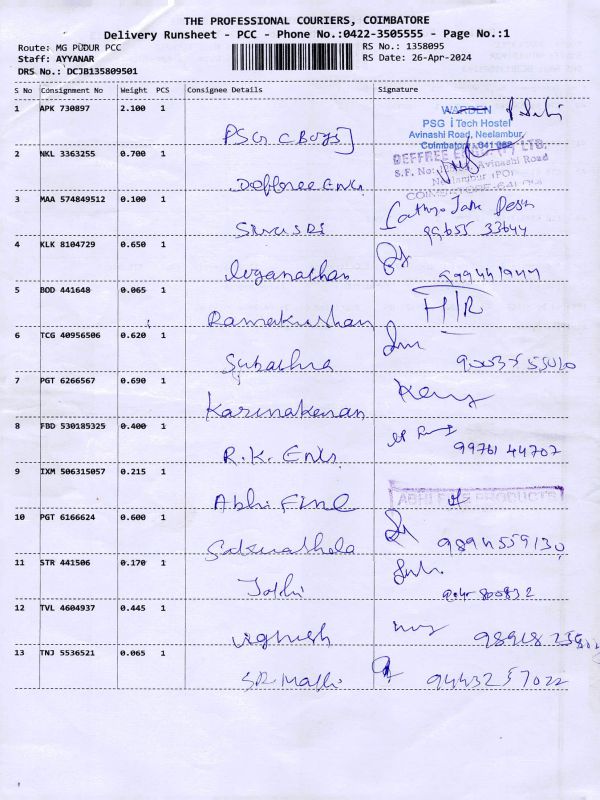 THE PROFESSIONAL COURIERS, COIMBATORE
Delivery Runsheet - PCC - Phone No.:0422-3505555 - Page No.:1
Route: MG PUDUR PCC
RS No.: 1358095
Staff: AYYANAR
RS Date: 26-Apr-2024
DRS No.: DCJB135809501
S No Consignment No Weight PCS Consignee Details Signature
1 APK 730897 2.100 1
WARDEN
PSG iTech Hostel
Avinashi Road, Neelambur,
Coimbatore - 641 062
PSG (Boys)
2 NKL 3363255 0.700 1
S.F. No: Avinashi Road
Neelambur (PO)
3 MAA 574849512 0.100 1
99655 33644
4 KLK 8104729 0.650 1
loganathan
5 BOD 441648 0.065 1
H/R
Ramakrishnan
6 TCG 40956506 0.620 1
7 PGT 6266567 0.690 1
Karunakaran
8 FBD 530185325 0.400 1
R.K. Ents
99761 44707
9 IXM 506315057 0.215 1
ABHI FINE PRODUCTS
Abhi Fine
10 PGT 6166624 0.600 1
9894559130
11 STR 441506 0.170 1
12 TVL 4604937 0.445 1
Vighnesh
13 TNJ 5536521 0.065 1
9443257022